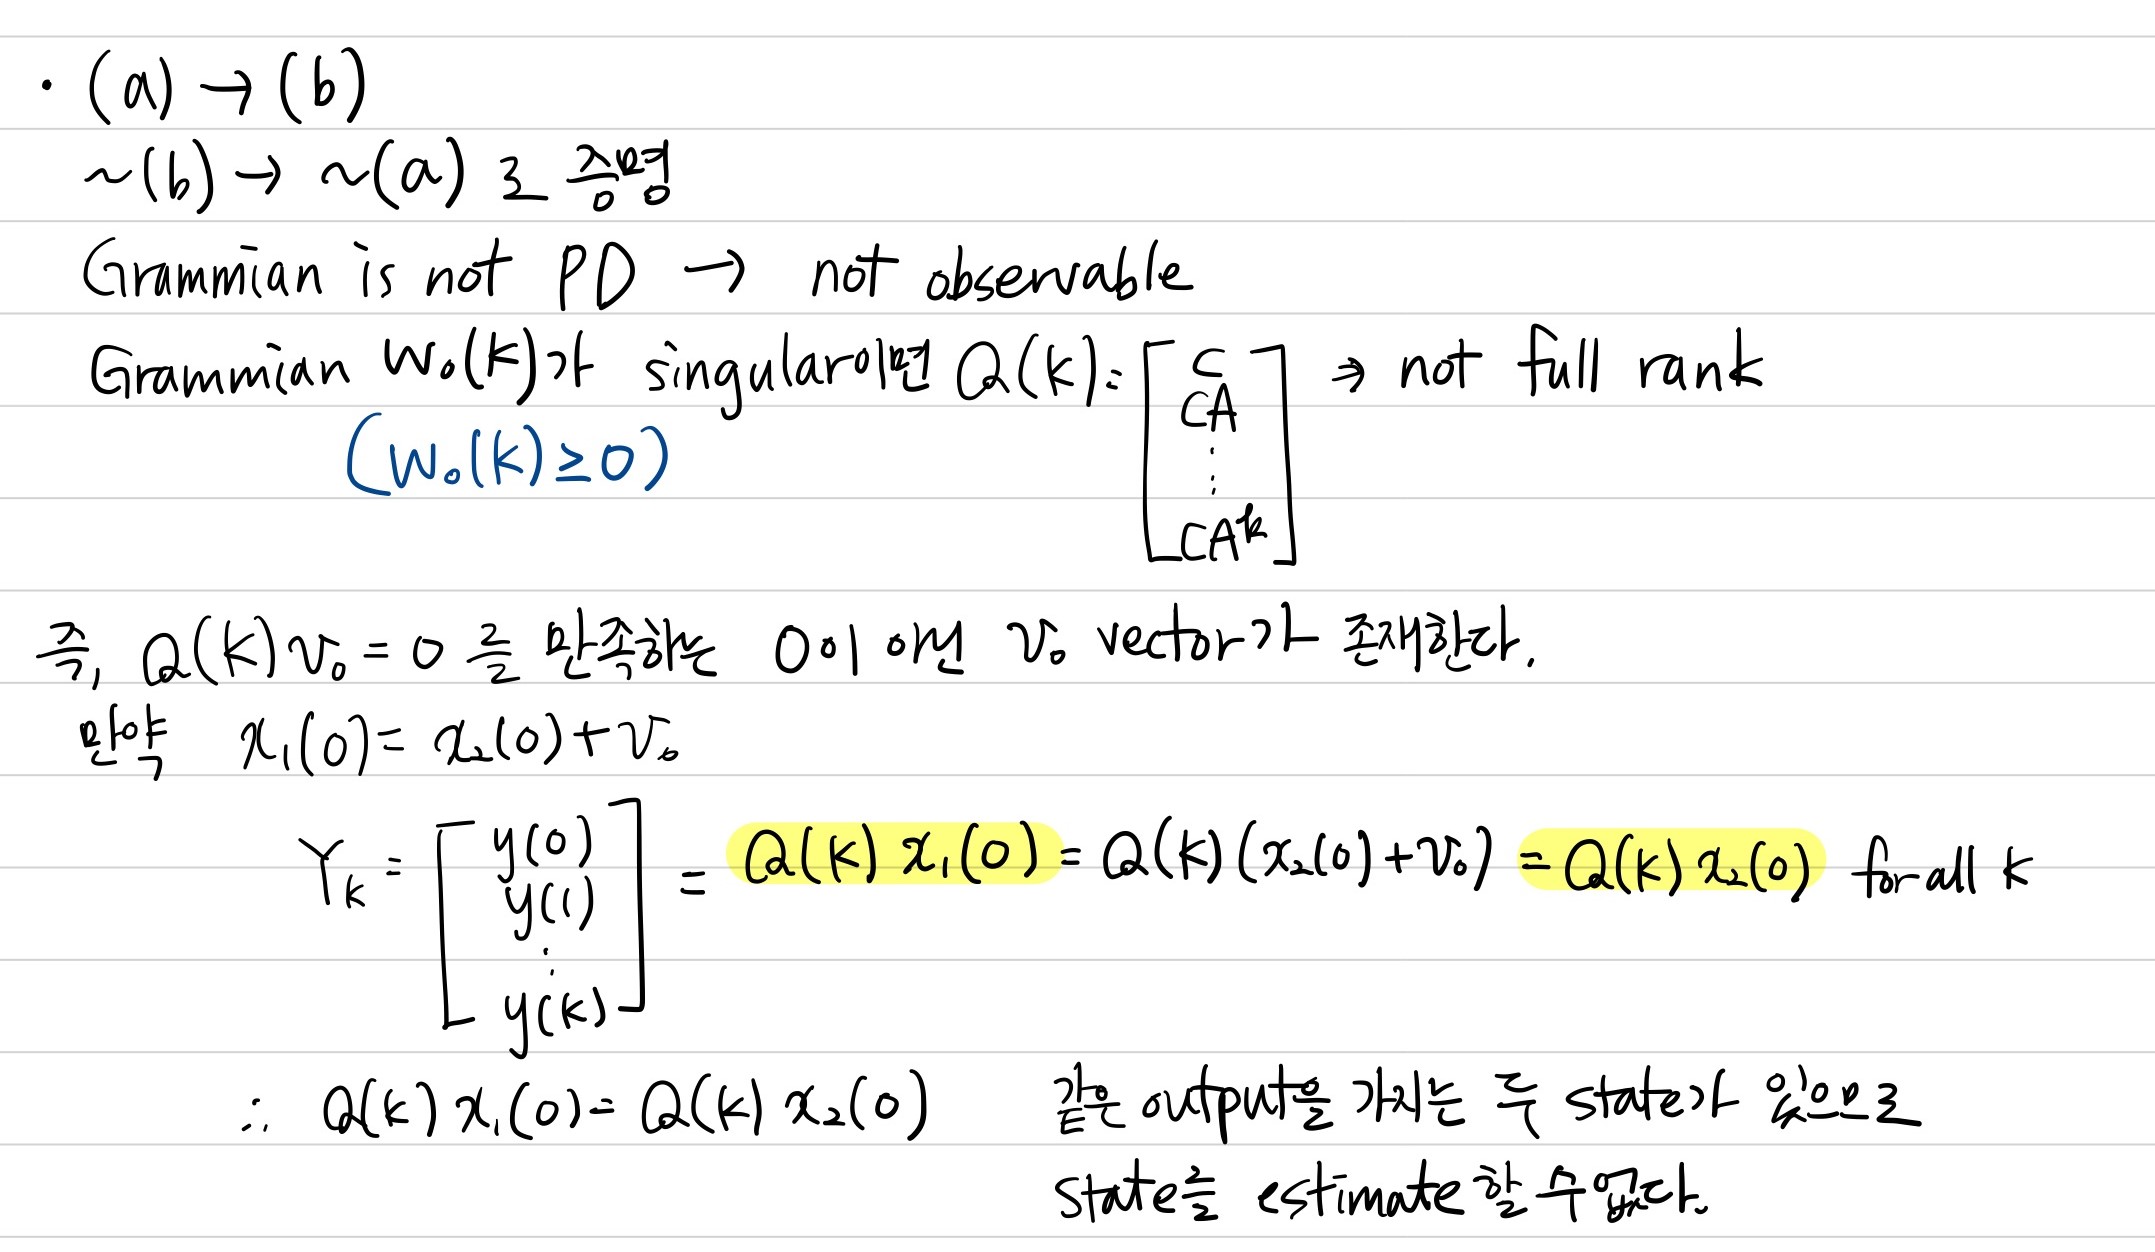 · (a) → (b)
~(b) → ~(a) 로 증명
Grammian is not PD → not observable
Grammian W₀(k)가 singular이면 Q(k) = [ C CA ⋮ CAᵏ ] → not full rank
(W₀(k) ≥ 0)
즉, Q(k)v₀ = 0 를 만족하는 0이 아닌 v₀ vector가 존재한다.
만약 x₁(0) = x₂(0) + v₀
Yₖ = [ y(0) y(1) ⋮ y(k) ] = Q(k) x₁(0) = Q(k)(x₂(0) + v₀) = Q(k) x₂(0) for all k
∴ Q(k) x₁(0) = Q(k) x₂(0) 같은 output을 가지는 두 state가 있으므로
state를 estimate 할 수 없다.